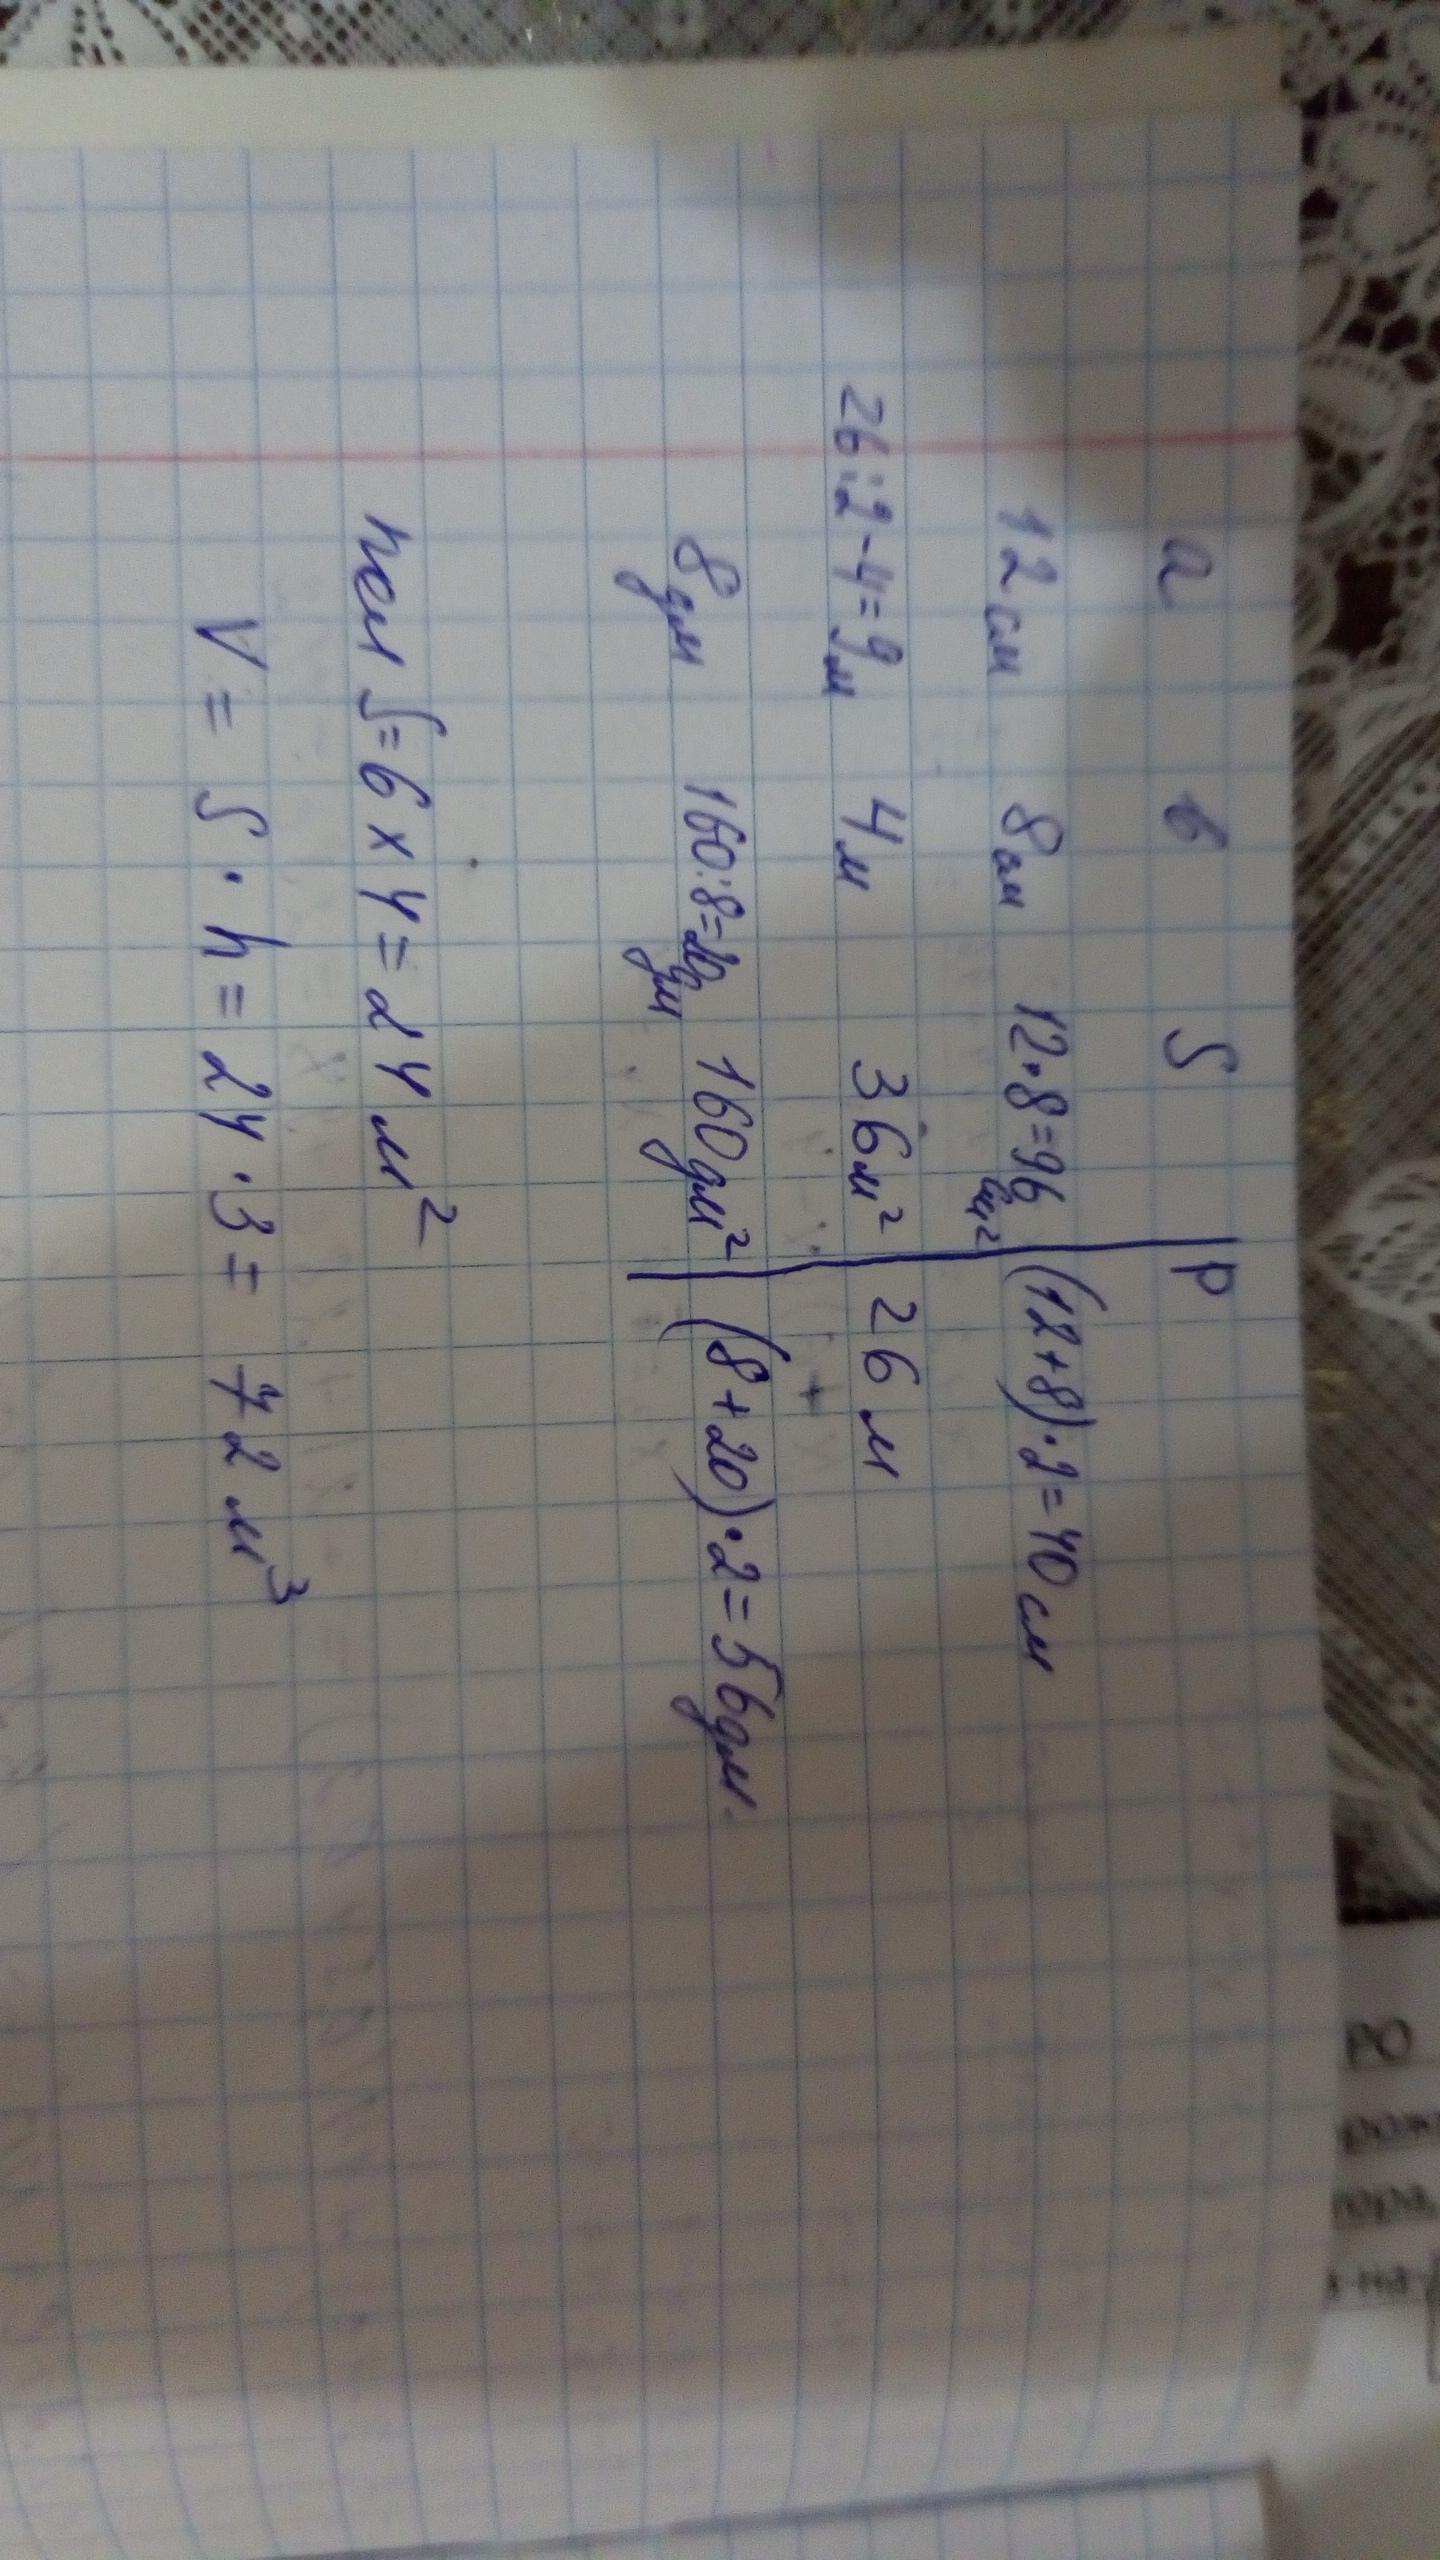 a в S P
12 см 8 см 12·8=96 см² (12+8)·2=40 см
26:2-4=9 м 4 м 36 м² 26 м
8 дм 160:8=20 дм 160 дм² (8+20)·2=56 дм.
пол S=6 х 4=24 м²
V = S · h = 24 · 3 = 72 м³
РО